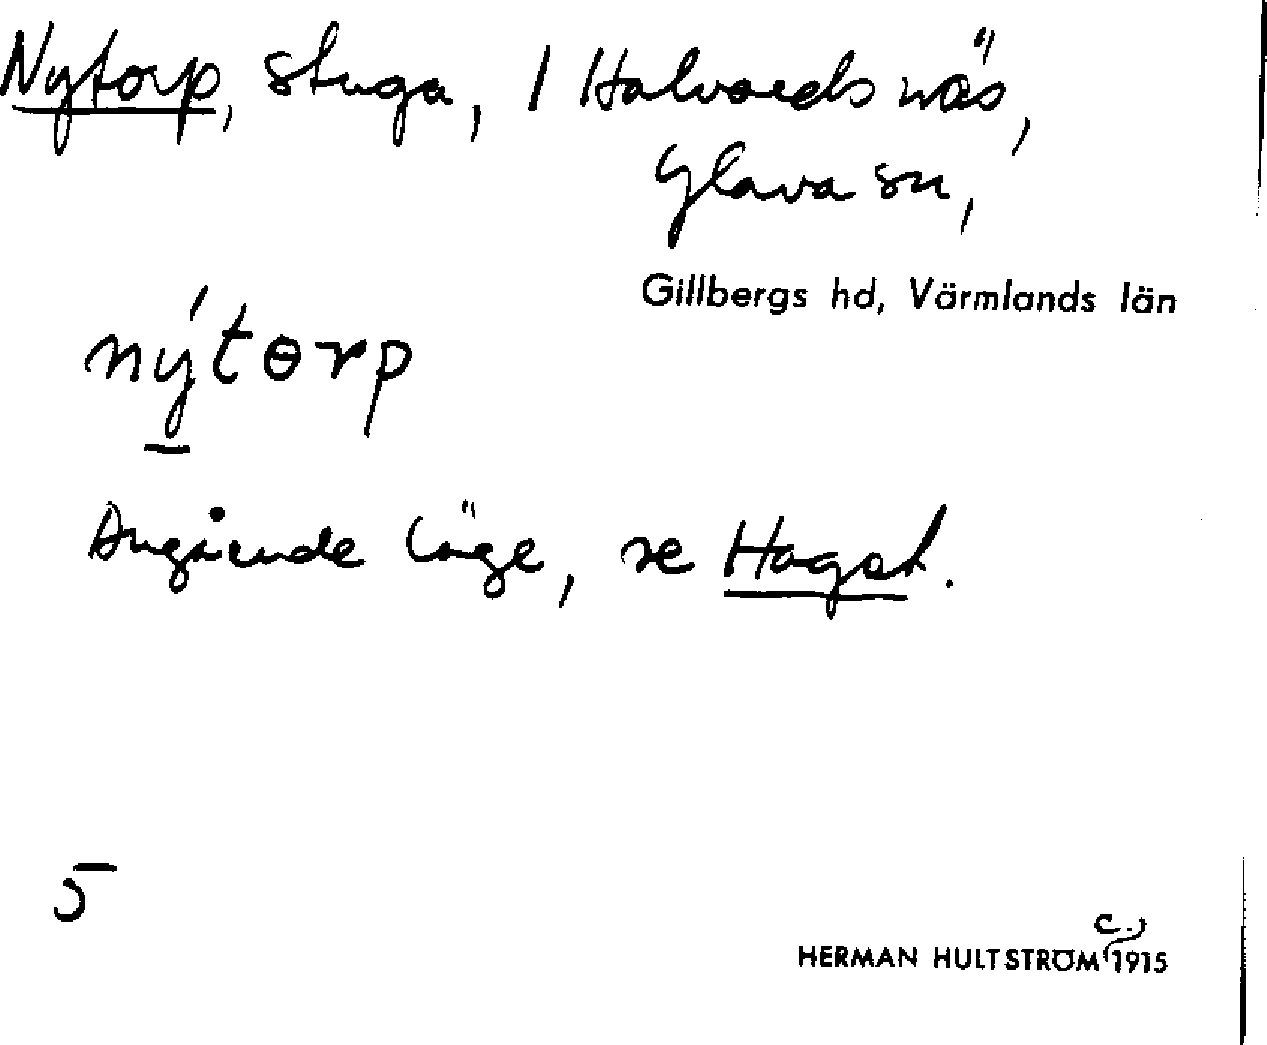 Nytorp, stuga, 1 Halvardsnäs,
Glava sn,
Gillbergs hd, Värmlands län
nýtɵrp
Angående läge, se Hagst.
5
c.
HERMAN HULTSTRÖM 1915